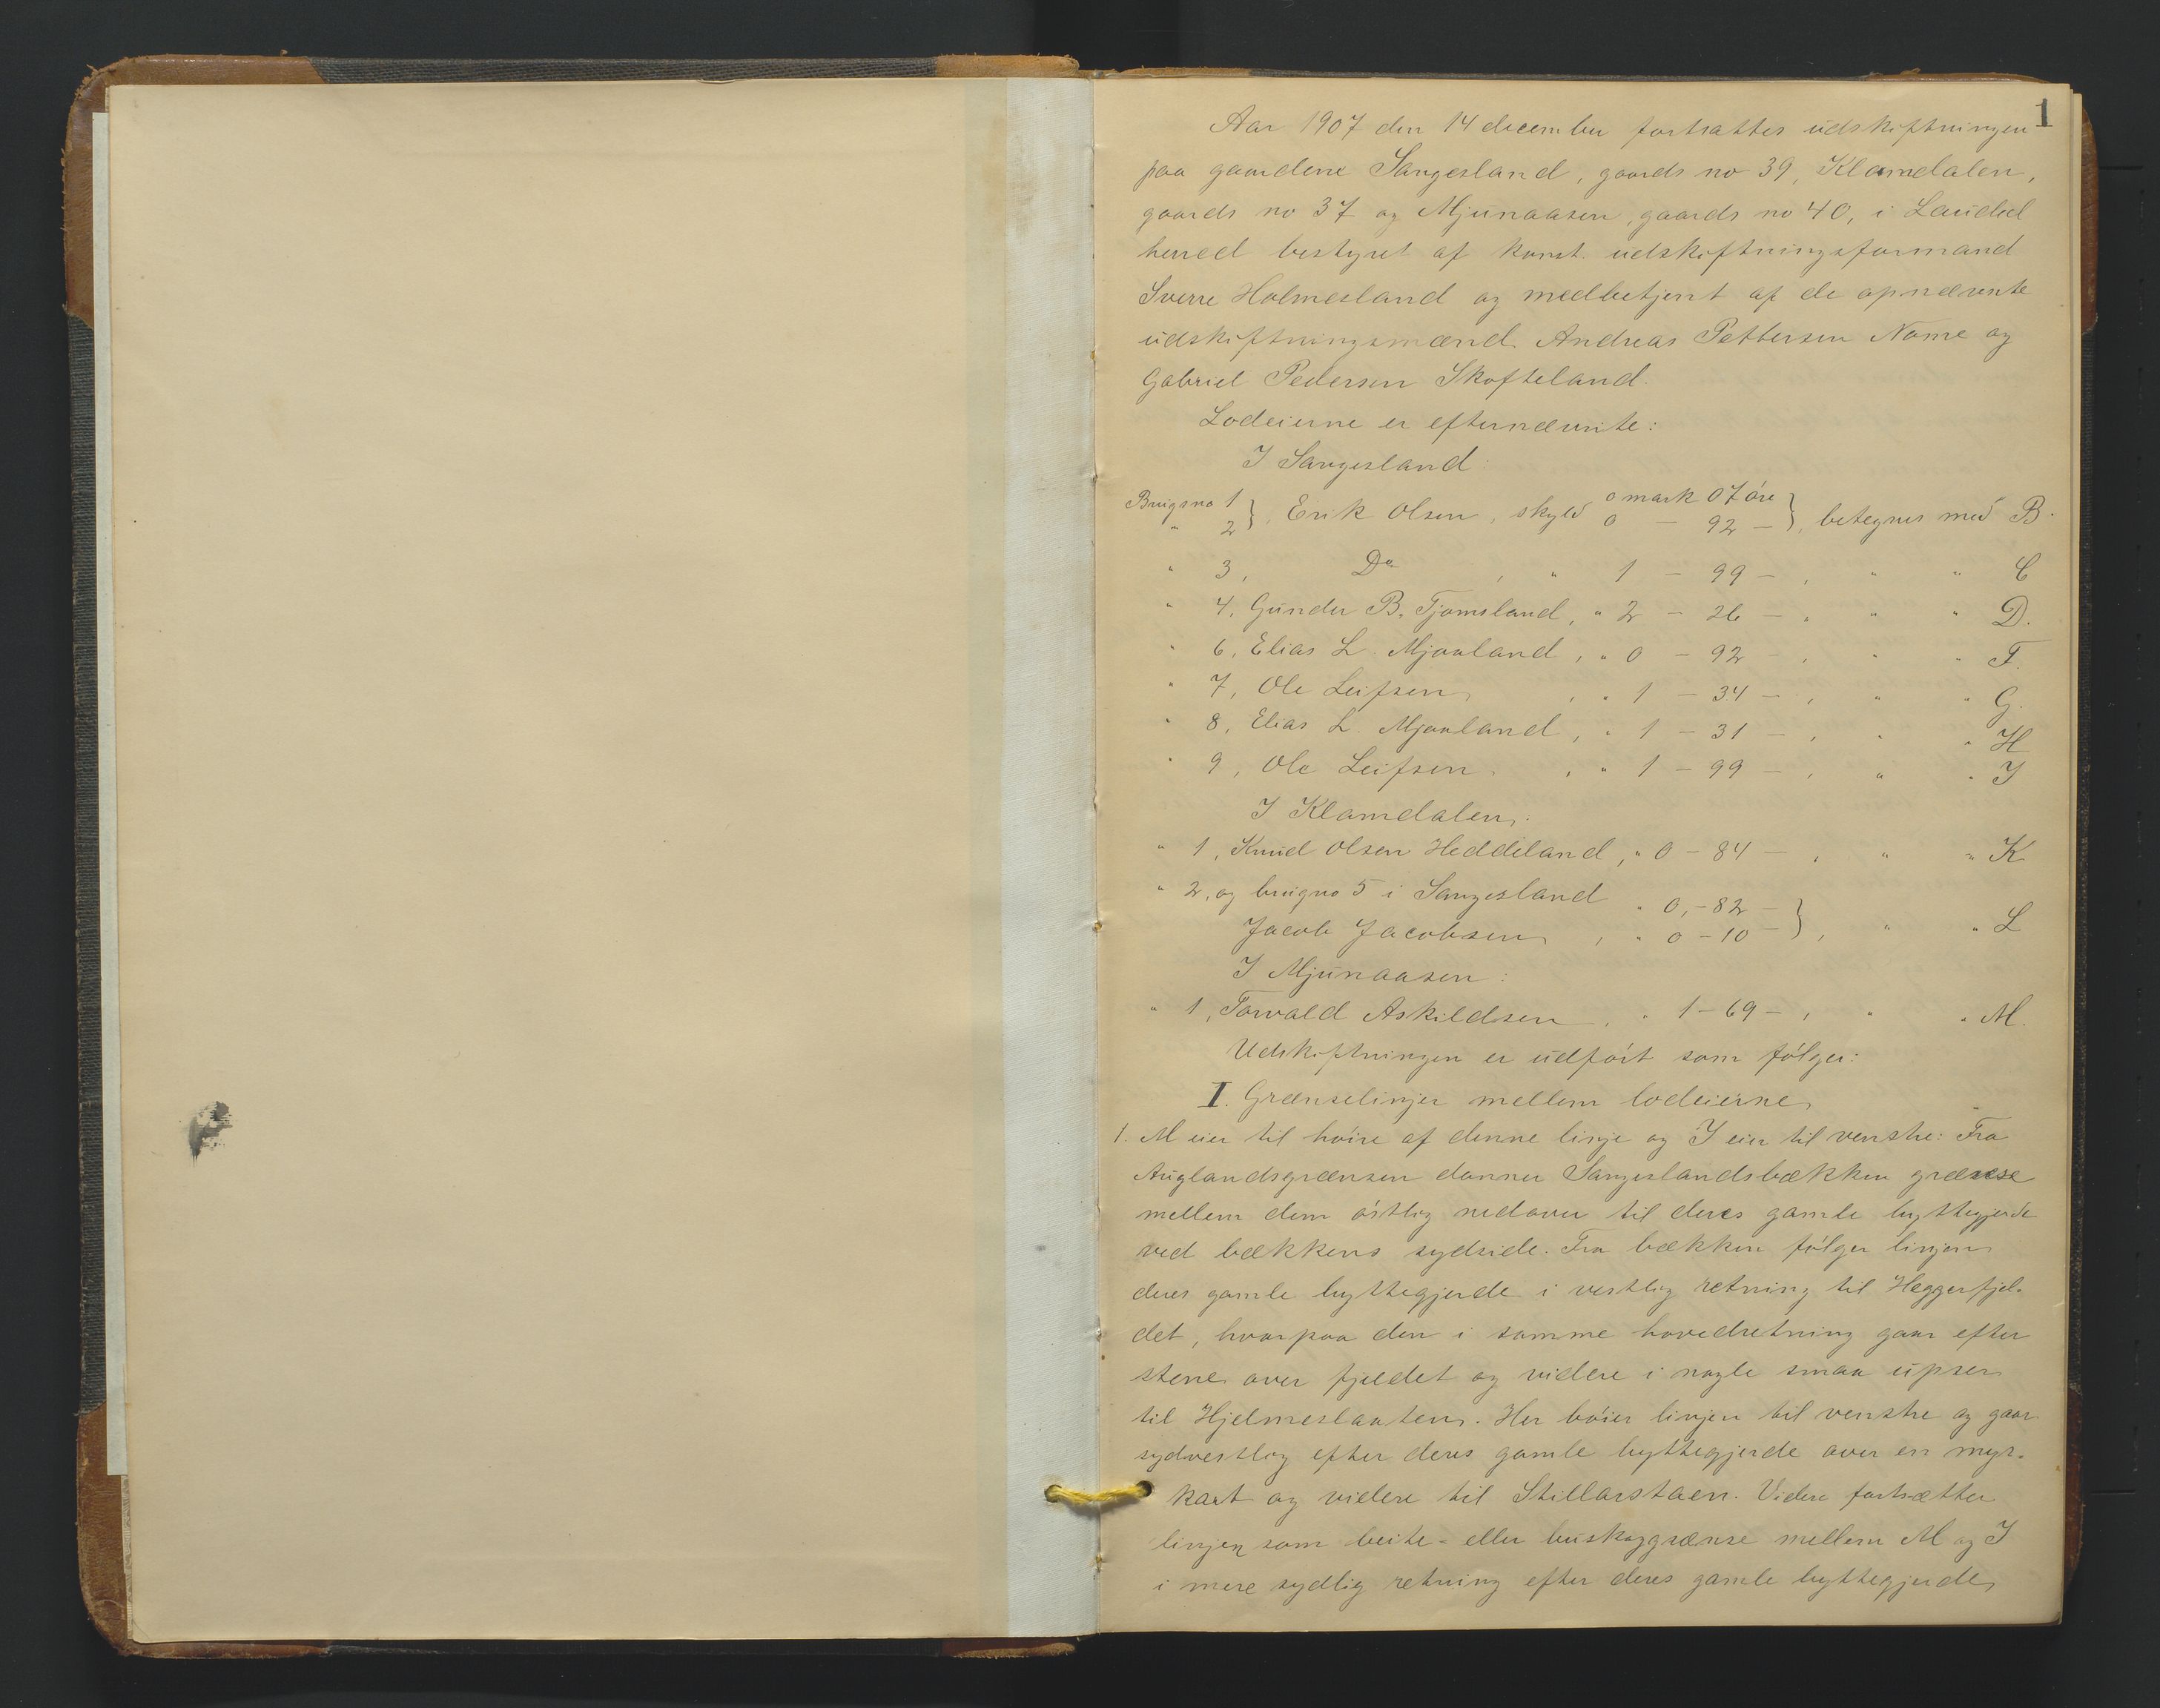 1
Aar 1907 den 14 december fortsattes udskiftningen
paa gaardene Sangesland, gaards no 39, Klamdalen,
gaards no 37 og Mjunaasen, gaards no 40, i Laudal
herred bestyret af konst. udskiftningsformand
Sverre Holmesland og medbetjent af de opnævnte
udskiftningsmænd Andreas Pettersen Nome og
Gabriel Pedersen Skofteland.
Lodeierne er efternævnte:
I Sangesland:
Brugsno 1 } , Erik Olsen, skyld 0 mark 07 øre } , betegnes med B.
" 2 } 0 — 92 — }
" 3, Do , " 1 — 99 — , " " C
" 4, Gunder B. Tjomsland, " 2 — 26 — , " " D.
" 6, Elias L. Mjaaland, " 0 — 92 — , " " F.
" 7, Ole Leifsen , " 1 — 34 — , " " G.
" 8, Elias L. Mjaaland, " 1 — 31 — , " " H
" 9, Ole Leifsen , " 1 — 99 — , " " I
I Klamdalen:
" 1, Knud Olsen Heddeland, " 0 — 84 — , " " K
" 2, og brugno 5 i Sangesland " 0,—82 — }
Jacob Jacobsen , " 0 — 10 — } , " " L
I Mjunaasen:
" 1, Torvald Askildsen , " 1 — 69 — , " " M.
Udskiftningen er udført som følger:
I. Grænselinjer mellem lodeierne
1. M eier til høire af denne linje og I eier til venstre: Fra
Auglandsgrænsen danner Sangeslandsbækken grænse
mellem dem østlig nedover til deres gamle byttegjerde
ved bækkens sydside. Fra bækken følger linjen
deres gamle byttegjerde i vestlig retning til Heggerfjel-
det, hvorpaa den i samme hovedretning gaar efter
stene over fjeldet og videre i nogle smaa upser
til Hjelmeslaaten. Her bøier linjen til venstre og gaar
sydvestlig efter deres gamle byttegjerde over en myr-
kart og videre til Stillarstaen. Videre fortsætter
linjen som beite- eller buskoggrænse mellem M og I
i mere sydlig retning efter deres gamle byttegjerde